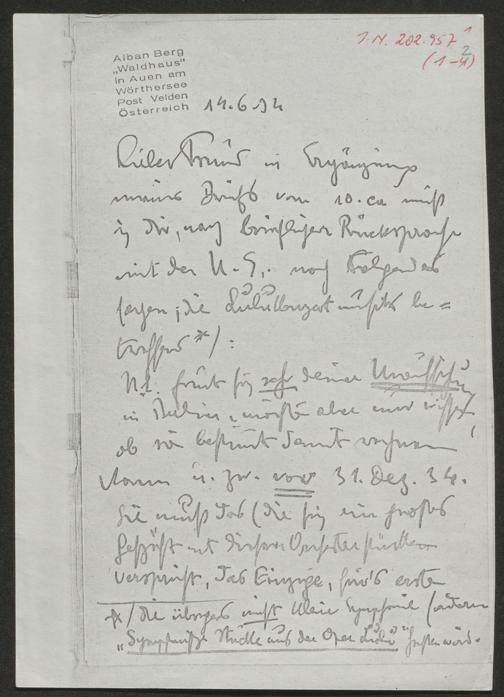 1. N. 202.957 1
2
(1-4)
Alban Berg
„Waldhaus"
in Auen am
Wörthersee
Post Velden
Österreich
14.6.34
Lieber Freund in Ergänzung
meines Briefs vom 10. ca muß
ich Dir, nach brieflicher Rücksprache
mit der U.E., noch Folgendes
sagen; die Lulu musik be=
treffend */ :
U.E. freut sich sehr deiner Uraufführung
in Berlin, möchte aber nur wissen,
ob sie bestimmt damit rechnen
kann u. zw. vor 31. Dez. 34.
Sie muß das (die sich ein großes
Geschäft mit diesen Orchesterstücken
verspricht, das Einzige, fürs erste
*/ die übrigens nicht kleine Symphonie (sondern
„Symphonische Stücke aus der Oper Lulu" heißen wird.